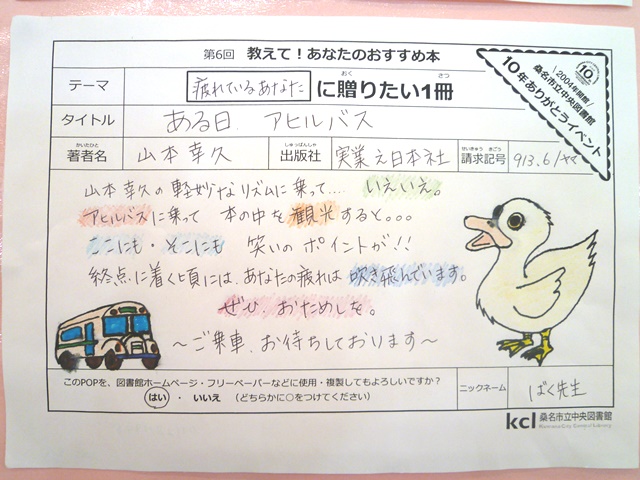 第6回 教えて！あなたのおすすめ本
テーマ 疲れているあなた に贈りたい1冊
おく さつ
タイトル ある日 アヒルバス
かいたひと しゅっぱんしゃ せいきゅう きごう
著者名 山本幸久 出版社 実業之日本社 請求記号 913.6/ヤマ
2004年開館
桑名市立中央図書館
10年ありがとうイベント
10
山本幸久の軽妙なリズムに乗って.... いえいえ。
アヒルバスに乗って 本の中を観光すると。。。
ここにも・そこにも 笑いのポイントが!!
終点に着く頃には、あなたの疲れは吹き飛んでいます。
ぜひ、おためしを。
～ご乗車、お待ちしております～
このPOPを、図書館ホームページ・フリーペーパーなどに使用・複製してもよろしいですか？
はい ・ いいえ （どちらかに○をつけてください）
ニックネーム ぱく先生
kcl 桑名市立中央図書館
Kuwana City Central Library